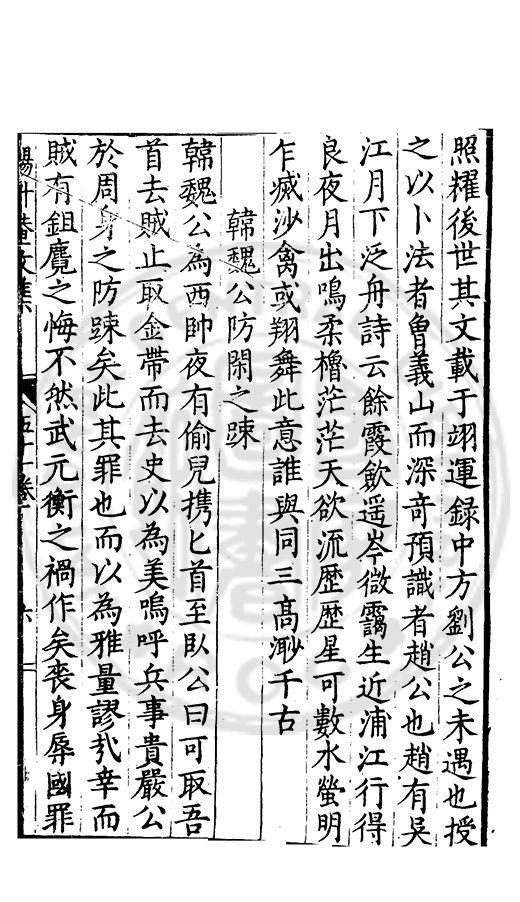 照耀後世其文載于翊運録中方劉公之未遇也授
之以卜法者魯義山而深竒預識者趙公也趙有吴
江月下泛舟詩云餘霞歛遥岑微靄生近浦江行得
良夜月出鳴柔櫓茫茫天欲流歴歴星可數水螢明
乍滅沙禽或翔舞此意誰與同三髙渺千古
韓魏公防閑之踈
韓魏公為西帥夜有偷兒携匕首至卧公曰可取吾
首去賊止取金帶而去史以為美嗚呼兵事貴嚴公
於周身之防踈矣此其罪也而以為雅量謬㢤幸而
賊有鉏麑之悔不然武元衡之禍作矣丧身辱國罪